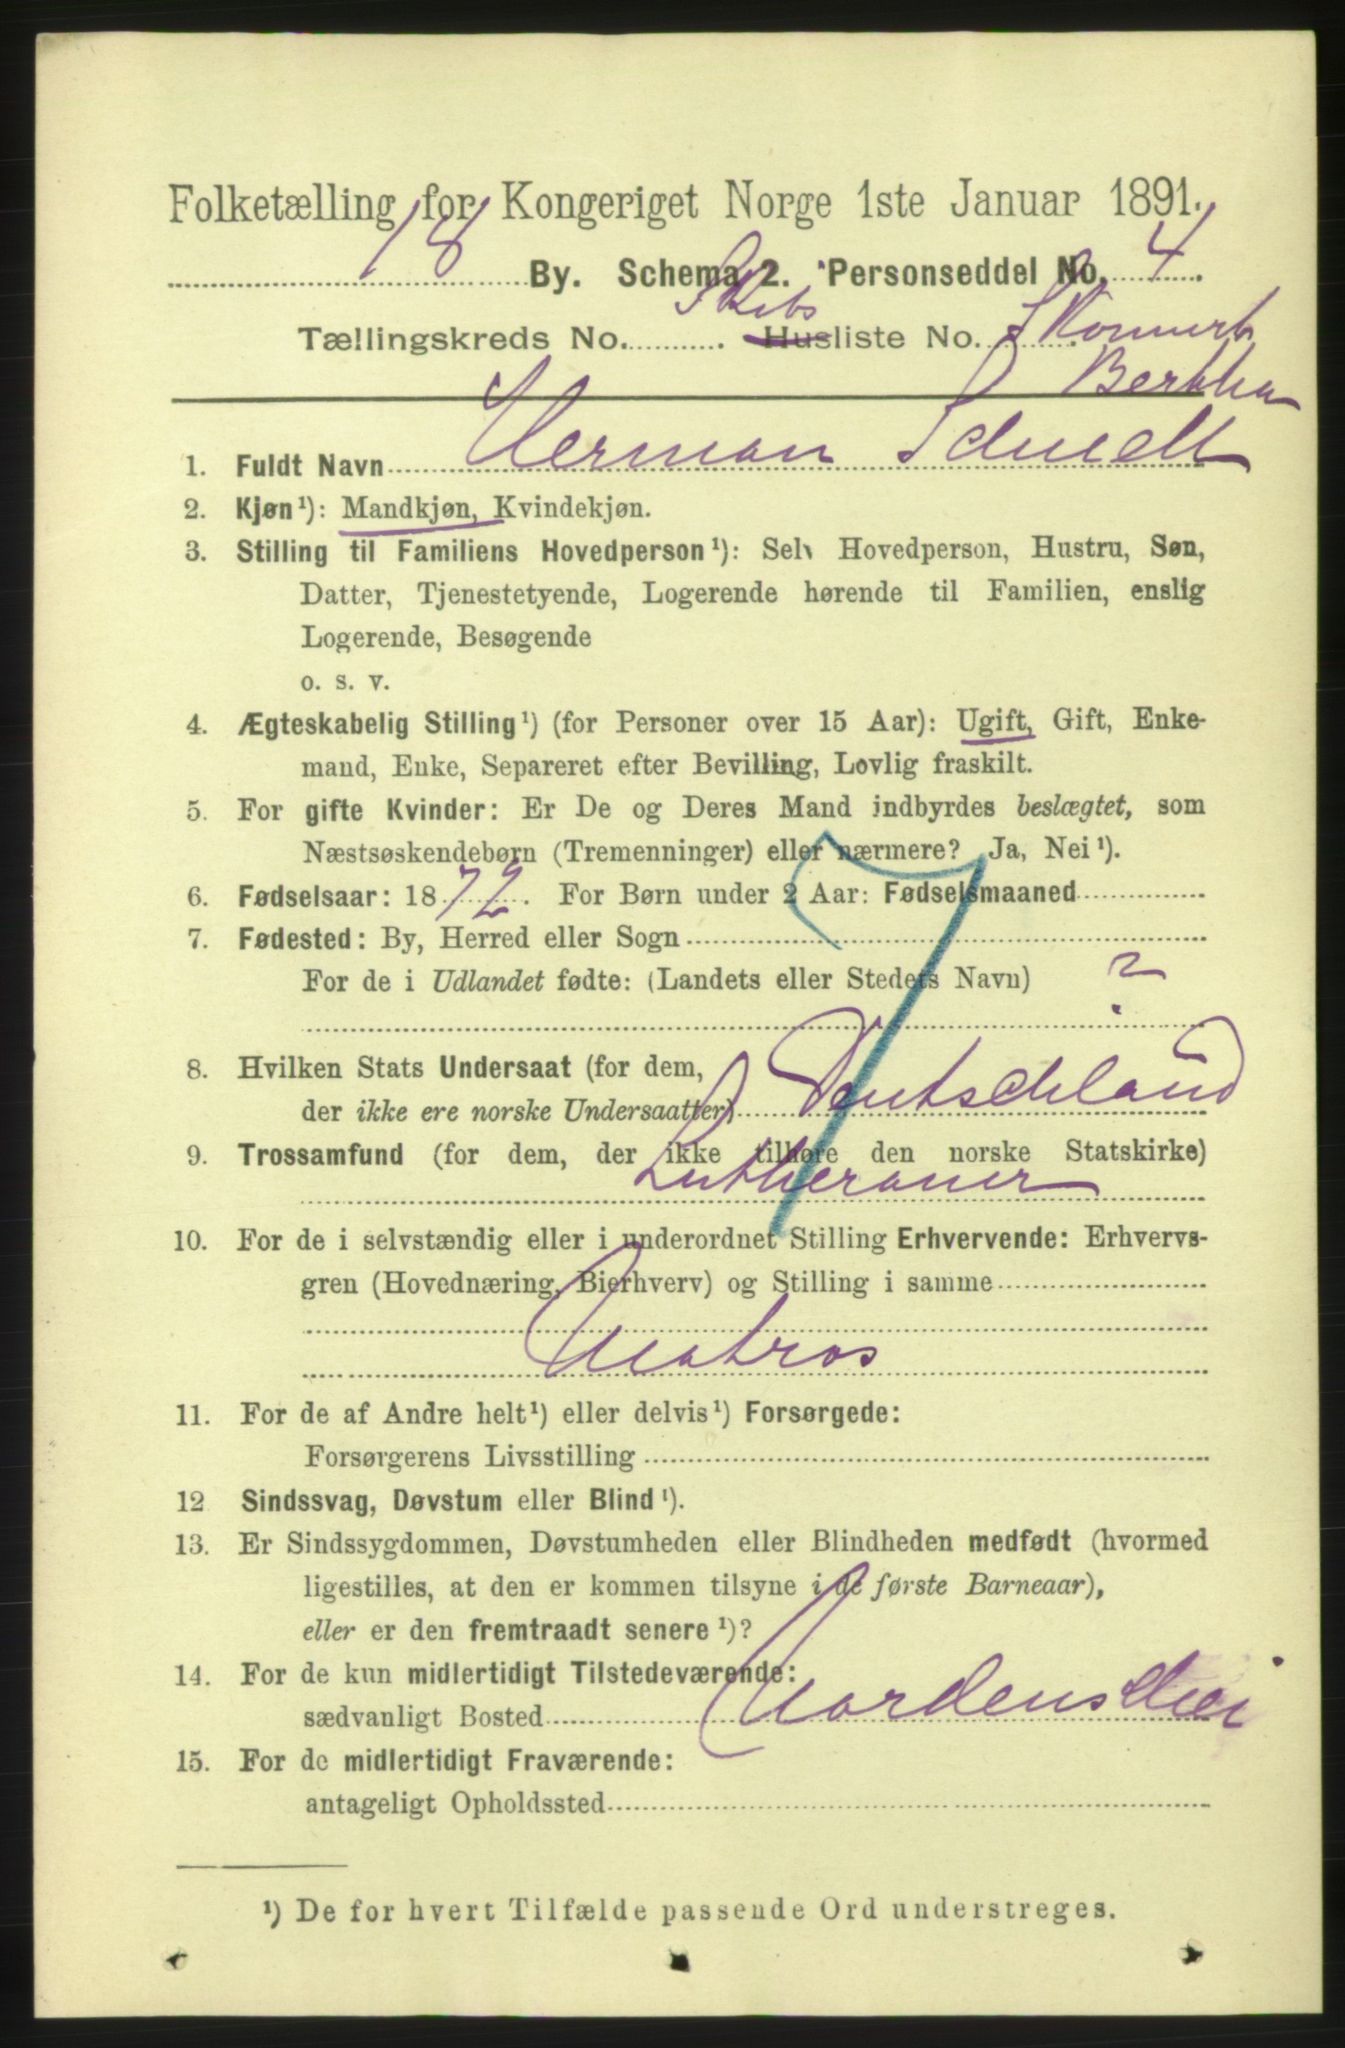 Folketælling for Kongeriget Norge 1ste Januar 1891.
18 By. Schema 2. Personseddel No. 4.
Tællingskreds No. . Husliste No. .
Skibs
Skonnert
Bertha
1. Fuldt Navn Herman Schnell
2. Kjøn¹): Mandkjøn, Kvindekjøn.
3. Stilling til Familiens Hovedperson¹): Selv Hovedperson, Hustru, Søn,
Datter, Tjenestetyende, Logerende hørende til Familien, enslig
Logerende, Besøgende
o. s. v.
4. Ægteskabelig Stilling¹) (for Personer over 15 Aar): Ugift, Gift, Enke-
mand, Enke, Separeret efter Bevilling, Lovlig fraskilt.
5. For gifte Kvinder: Er De og Deres Mand indbyrdes beslægtet, som
Næstsøskendebørn (Tremenninger) eller nærmere? Ja, Nei¹).
6. Fødselsaar: 1872. For Børn under 2 Aar: Fødselsmaaned
7. Fødested: By, Herred eller Sogn
For de i Udlandet fødte: (Landets eller Stedets Navn) ?
7
8. Hvilken Stats Undersaat (for dem,
der ikke ere norske Undersaatter) Deutschland
9. Trossamfund (for dem, der ikke tilhøre den norske Statskirke)
Lutheraner
10. For de i selvstændig eller i underordnet Stilling Erhvervende: Erhvervs-
gren (Hovednæring, Bierhverv) og Stilling i samme
Matros
11. For de af Andre helt¹) eller delvis¹) Forsørgede:
Forsørgerens Livsstilling
12 Sindssvag, Døvstum eller Blind¹).
13. Er Sindssygdommen, Døvstumheden eller Blindheden medfødt (hvormed
ligestilles, at den er kommen tilsyne i de første Barneaar),
eller er den fremtraadt senere¹)?
14. For de kun midlertidigt Tilstedeværende:
sædvanligt Bosted
15. For de midlertidigt Fraværende:
antageligt Opholdssted
¹) De for hvert Tilfælde passende Ord understreges.